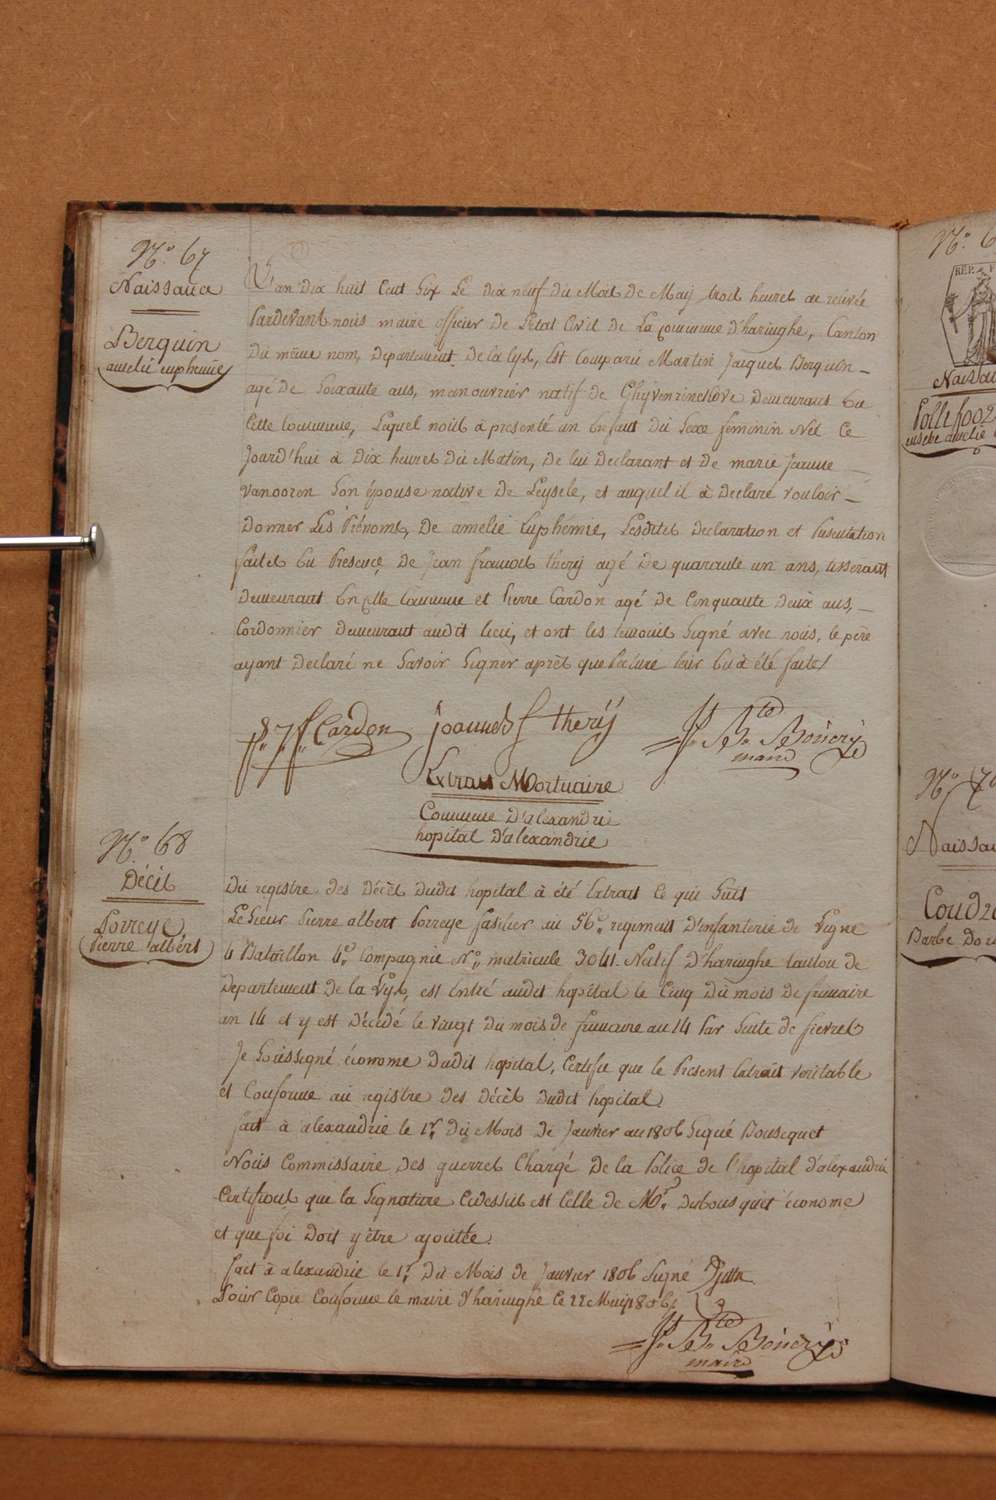 N.° 67
Naissance
Berquin
amelie euphemie
L'an dix huit Cent Six Le dix neuf du Mois de Maij trois heures de relevée
Pardevant nous maire officier de L'etat Civil de La commune d'haringhe, Canton
Du même nom, Departement de la lys, Est Comparu Martin Jacques Berquin
agé de Soixante ans, manouvrier natif de Ghijverinckhove Demeurant En
Cette Commune, Lequel nous à presenté un Enfant du Sexe feminin Née Ce
Jourd'hui à Dix heures du Matin, de lui Declarant et de marie Jeanne
vanooren Son épouse native de Leysele, et auquel il à Declaré vouloir
Donner Les Prénoms, De amelie Euphémie, Lesdites Declaration et Presentation
faites En Presence De Jean francois therij agé De quarante un ans, tisserant
Demeurant En Cette Commune et Pierre Cardon agé de Cinquante Deux ans,
Cordonnier Demeurant audit lieu, et ont les temoins Signé avec nous, le pere
ayant Declaré ne Savoir Signer après que Lecture leur En à été faite/
Cardon
Joannes f therij
J. Bte Bouery
maire
Extrait Mortuaire
Commune D'alexandrie
hopital D'alexandrie
N.° 68
Décès
Porreye
Pierre albert
Du registre des Décès dudit hopital à été Extrait Ce qui Suit
Le Sieur Pierre albert Porreye fusilier au 56.e regiment D'infanterie de Ligne
4 Bataillon 4.e Compagnie N.° matricule 3041 Natif D'haringhe Canton de
Departement De la Lys, est Entré audit hopital le Cinq Du mois De frimaire
an 14 et y est Décédé le vingt Du mois de frimaire an 14 Par Suite de fievres
Je Soussigné économe Dudit hopital, Certifie que le Present Extrait veritable
et Conforme au registre Des Décès Dudit hopital
fait à alexandrie le 1.r Du Mois De Janvier an 1806 Signé Dousquet
Nous Commissaire Des guerres Chargé De la Police de l'hopital d'alexandrie
Certifions que la Signature Cidessus est Celle de Mr. Desbousquet économe
et que foi Doit y être ajoutée
fait à alexandrie le 1.r Du Mois De Janvier 1806 Signé
Pour Copie Conforme le maire d'haringhe Ce 22 Maij 1806
J. Bte Bouery
maire
N.° 6
REP. F
Naissan
Pollefoo
N.° 70
Naissan
Coudr
Barbe Do